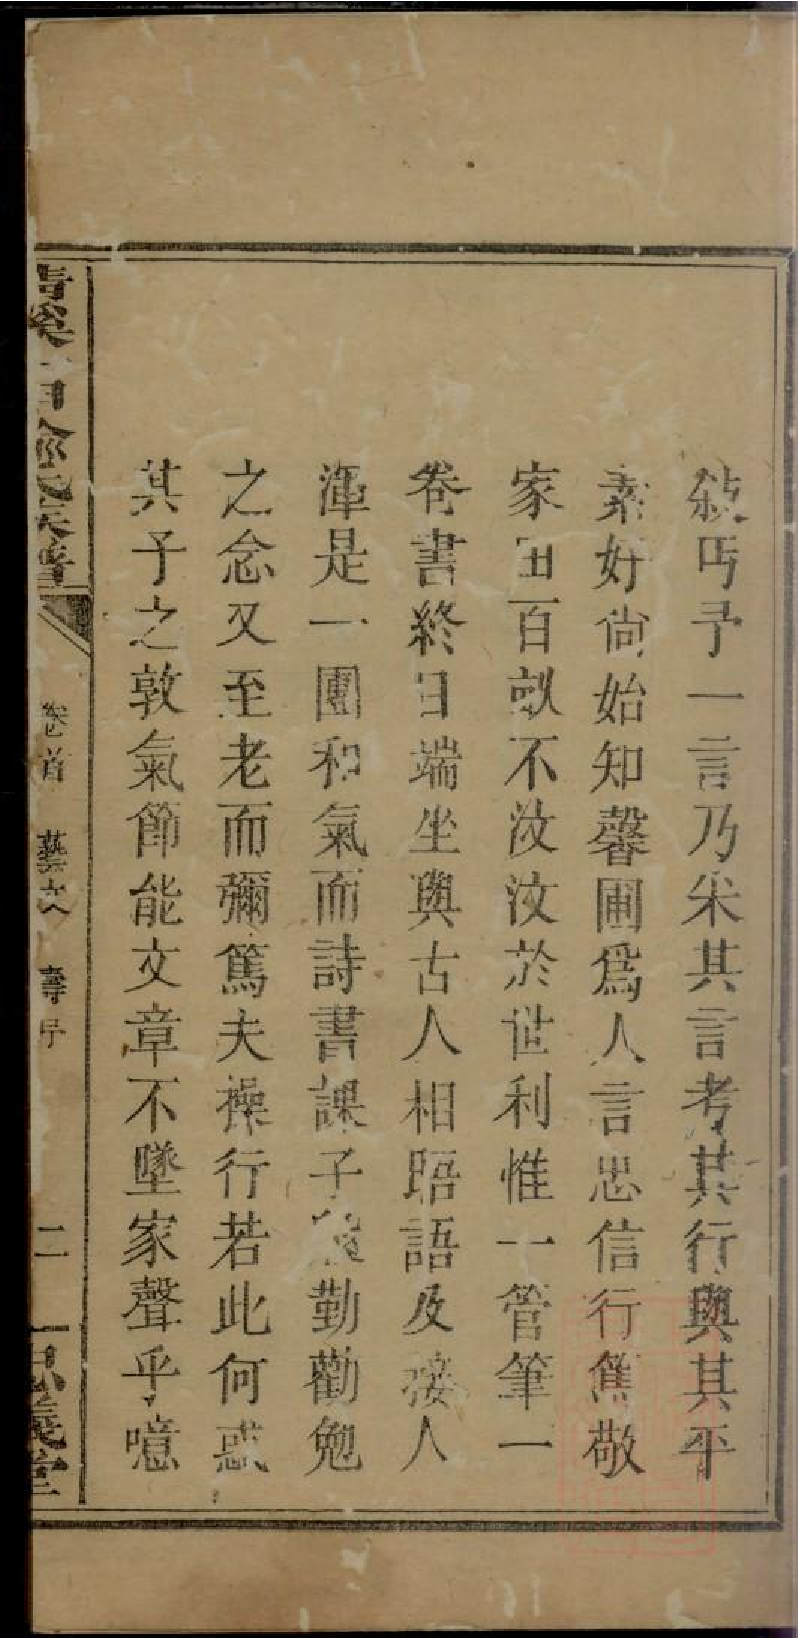 敍丐予一言乃采其言考其行與其平
素好尙始知馨圃爲人言忠信行篤敬
家田百畝不汶汶於世利惟一管筆一
卷書終日端坐與古人相晤語及接人
渾是一團和氣而詩書課子勤勸勉
之念又至老而彌篤夫操行若此何惑
其子之敦氣節能文章不墜家聲乎噫
徐氏族譜
卷首 藝文 壽序
二
思義堂